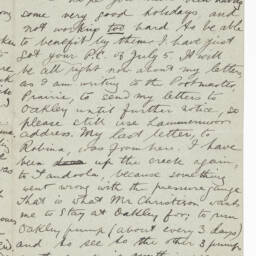 some very good holidays, and
not working too hard to be able
to benefit by them. I have just
got your P.C. of July 5. It will
be all right now about my letters
as I am writing to the Postmaster,
Prairie, to send my letters to
Oakley until further notice, so
please still use Lammermoor
address. My last letter, to
Robina, was from here. I have
been up the creek again,
to Tandoola, because something
went wrong with the pressure gauge
That is what Mr Christison wants
me to stay at Oakley for; to run
Oakley pump (about every 3 days)
and to see to the other 3 pumps